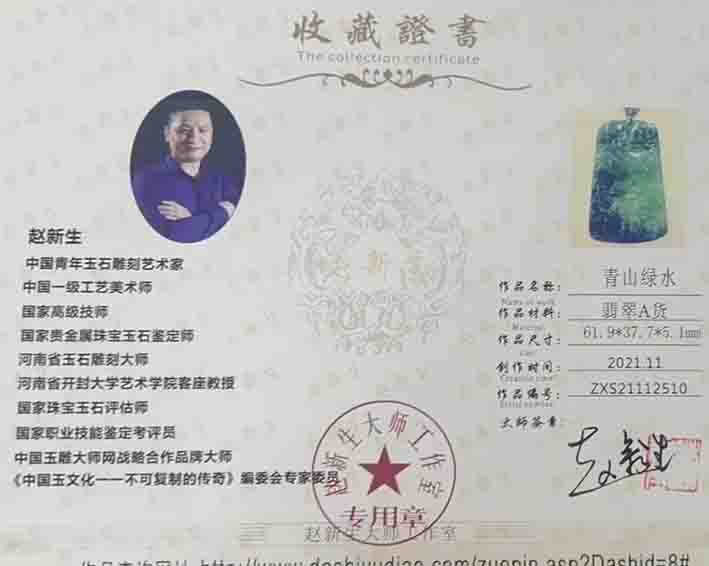 收藏證書
The collection certificate
赵新生
中国青年玉石雕刻艺术家
中国一级工艺美术师
国家高级技师
国家贵金属珠宝玉石鉴定师
河南省玉石雕刻大师
河南省开封大学艺术学院客座教授
国家珠宝玉石评估师
国家职业技能鉴定考评员
中国玉雕大师网战略合作品牌大师
《中国玉文化一一不可复制的传奇》编委会专家委员
作品名称: 青山绿水
Name of work
作品材料: 翡翠A货
Material
作品尺寸: 61.9*37.7*5.1mm
创作时间: 2021.11
作品编号: ZXS21112510
大师签章:
赵新生
赵新生大师工作室
专用章
赵新生大师工作室